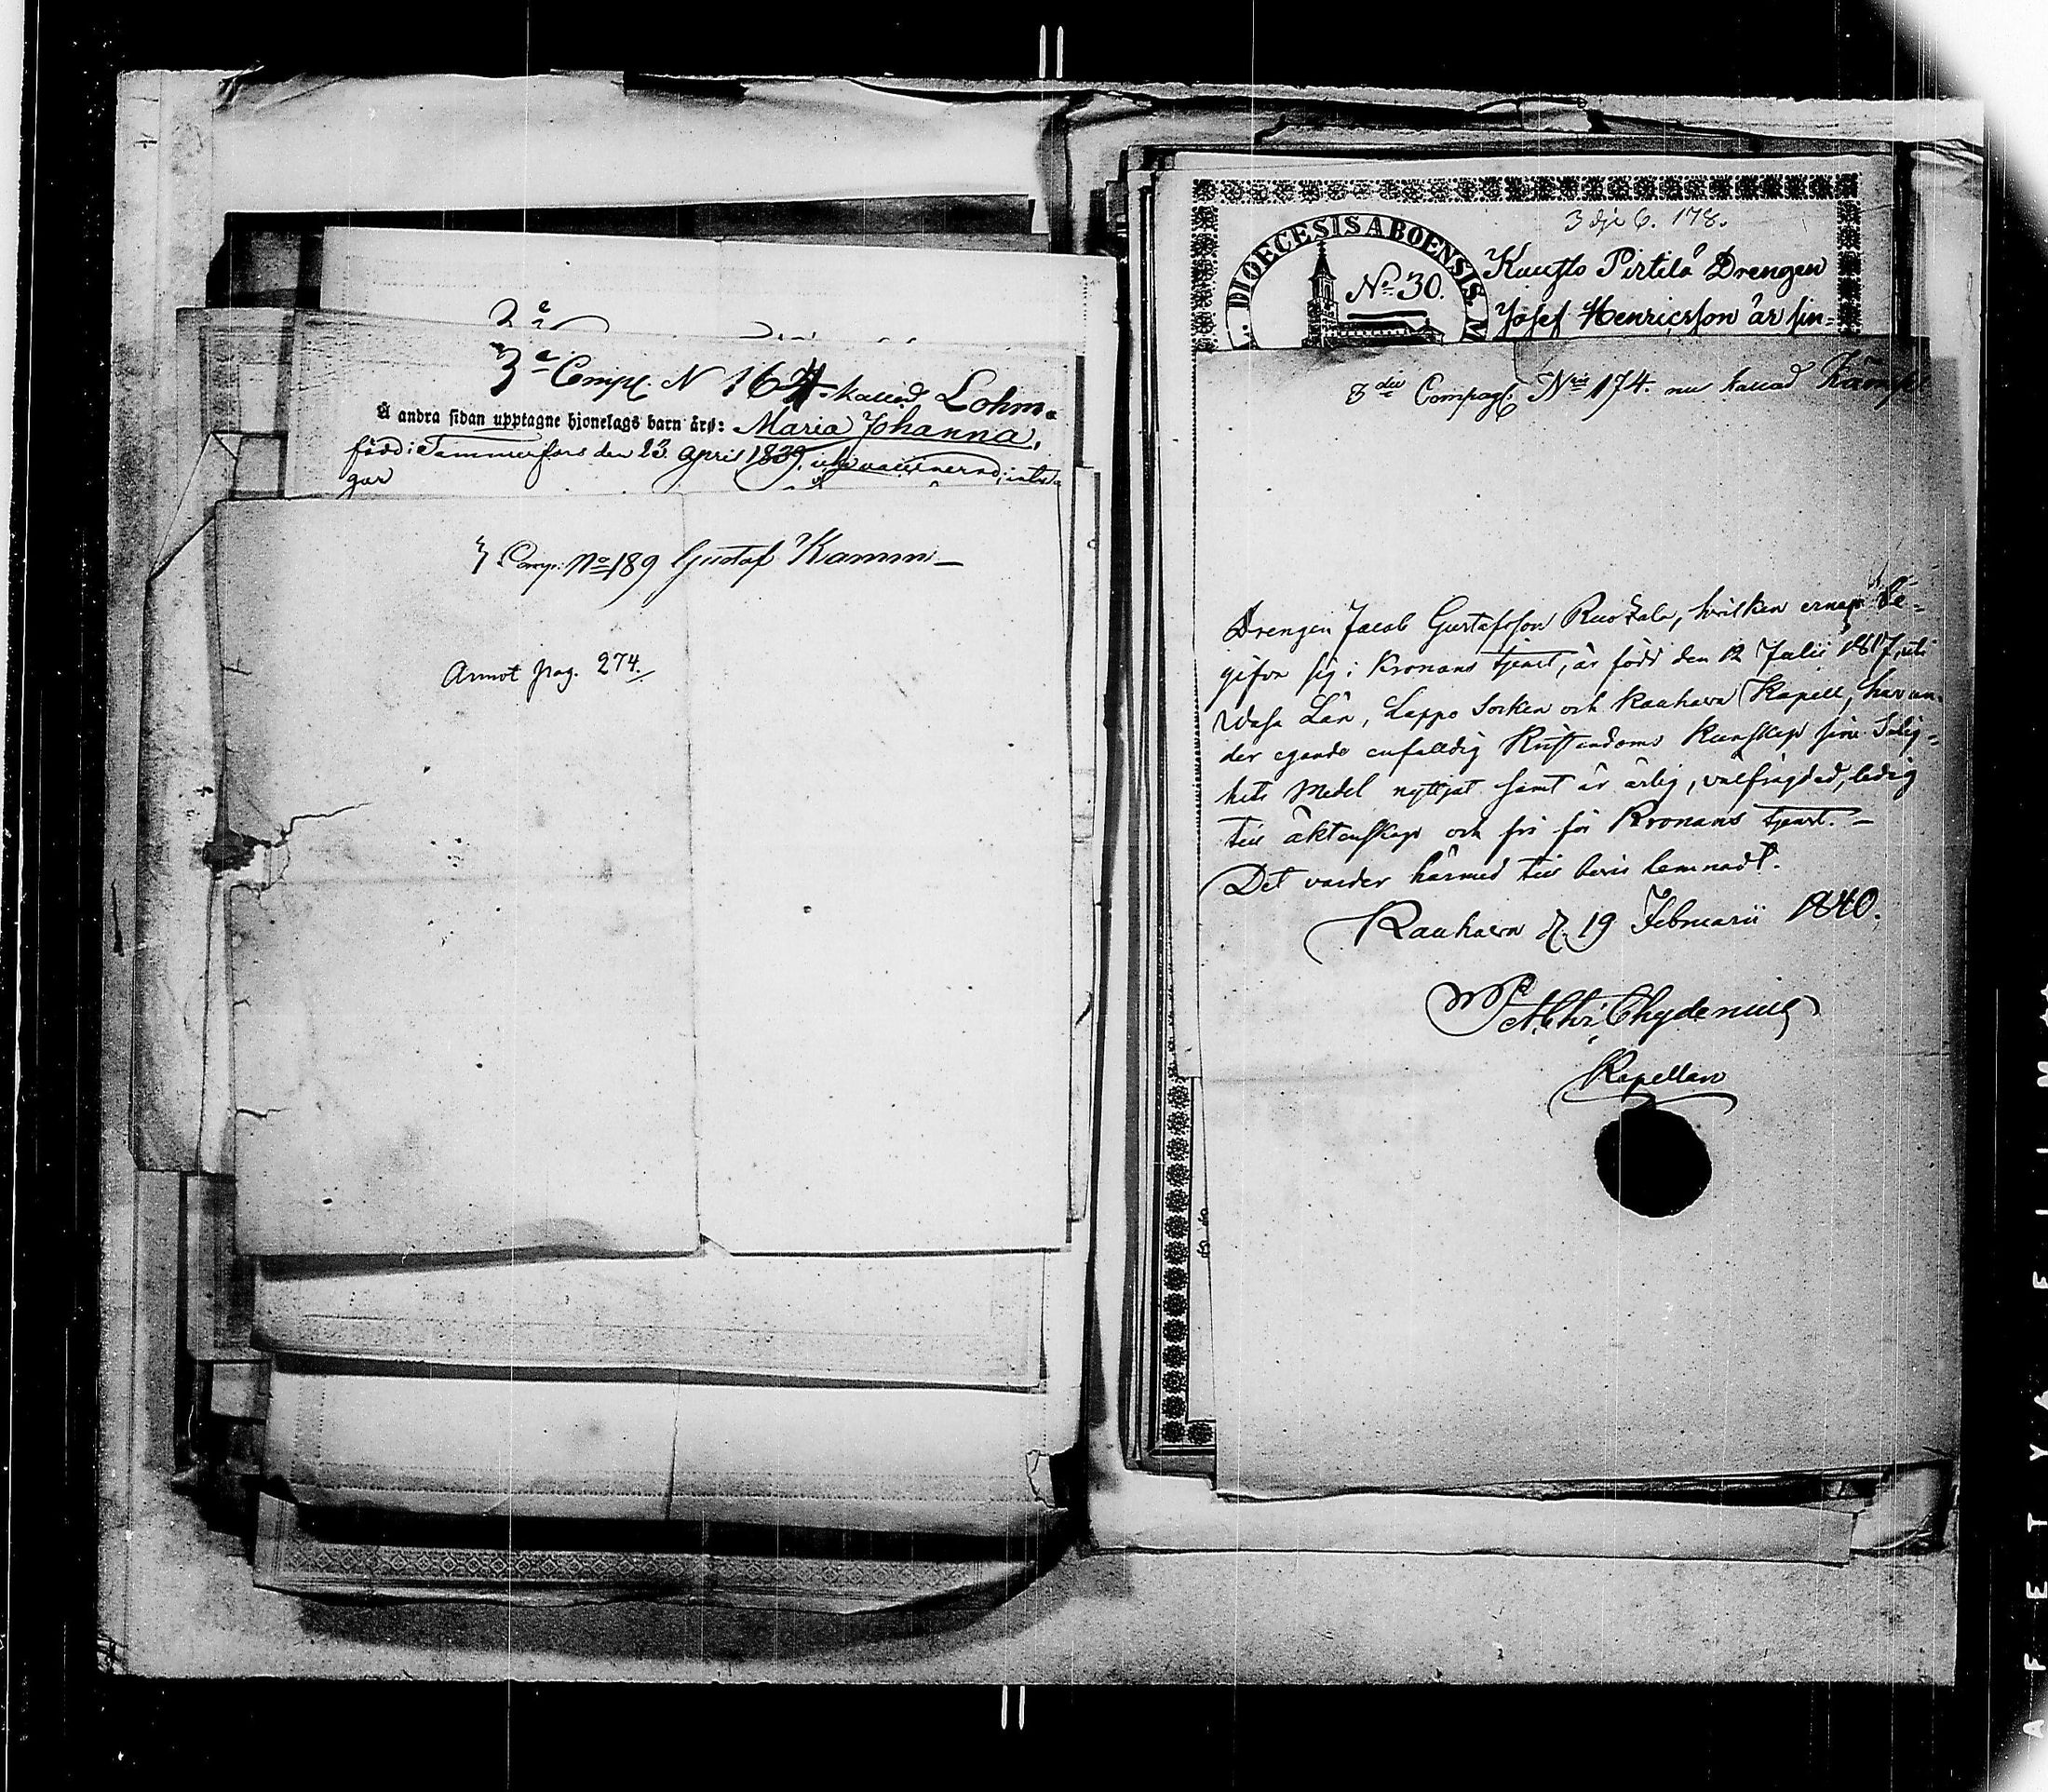 3a Comp. N 164 kallad Lohm.
Å andra sidan upptagne hjonelags barn äro: Maria Johanna,
född i Tammerfors den 23 April 1839, vaccinerad; intet
gar
3 Comp: No 189 Gustaf Kamm
Annot pag. 274.
3dje C. 178.
DIOECESIS ABOENSIS
No 30.
Kausto Pirtilä Drengen
Josef Henricsson är sin-
3die Compag. No 174. nu kallad Kämpe
Drengen Jacob Gustafsson Ruokala, hvilken ernar be-
gifva sig i Kronans tjenst, är född den 12 Julii 1817, uti
Wasa Län, Lappo Socken och Kauhava Kapell, har un-
der egande enfalldig Kristendoms Kunskap sine Salig-
hets Medel nyttjat samt är ärlig, välfrägdad, ledig
till äktenskap och fri för Kronans tjenst. –
Det varder härmed till bevis lemnadt.
Kauhava d. 19 Februarii 1840.
Chydenius
Kapellan